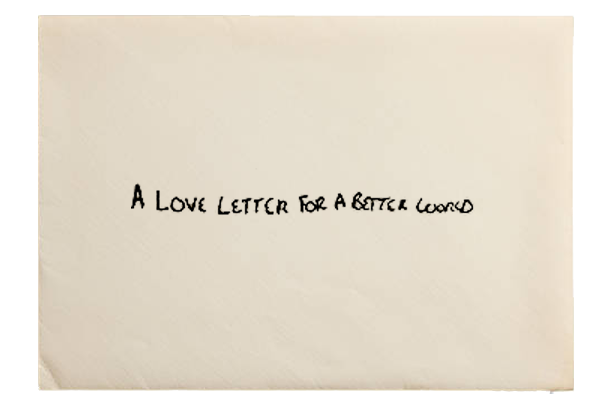 A LOVE LETTER FOR A BETTER WORLD